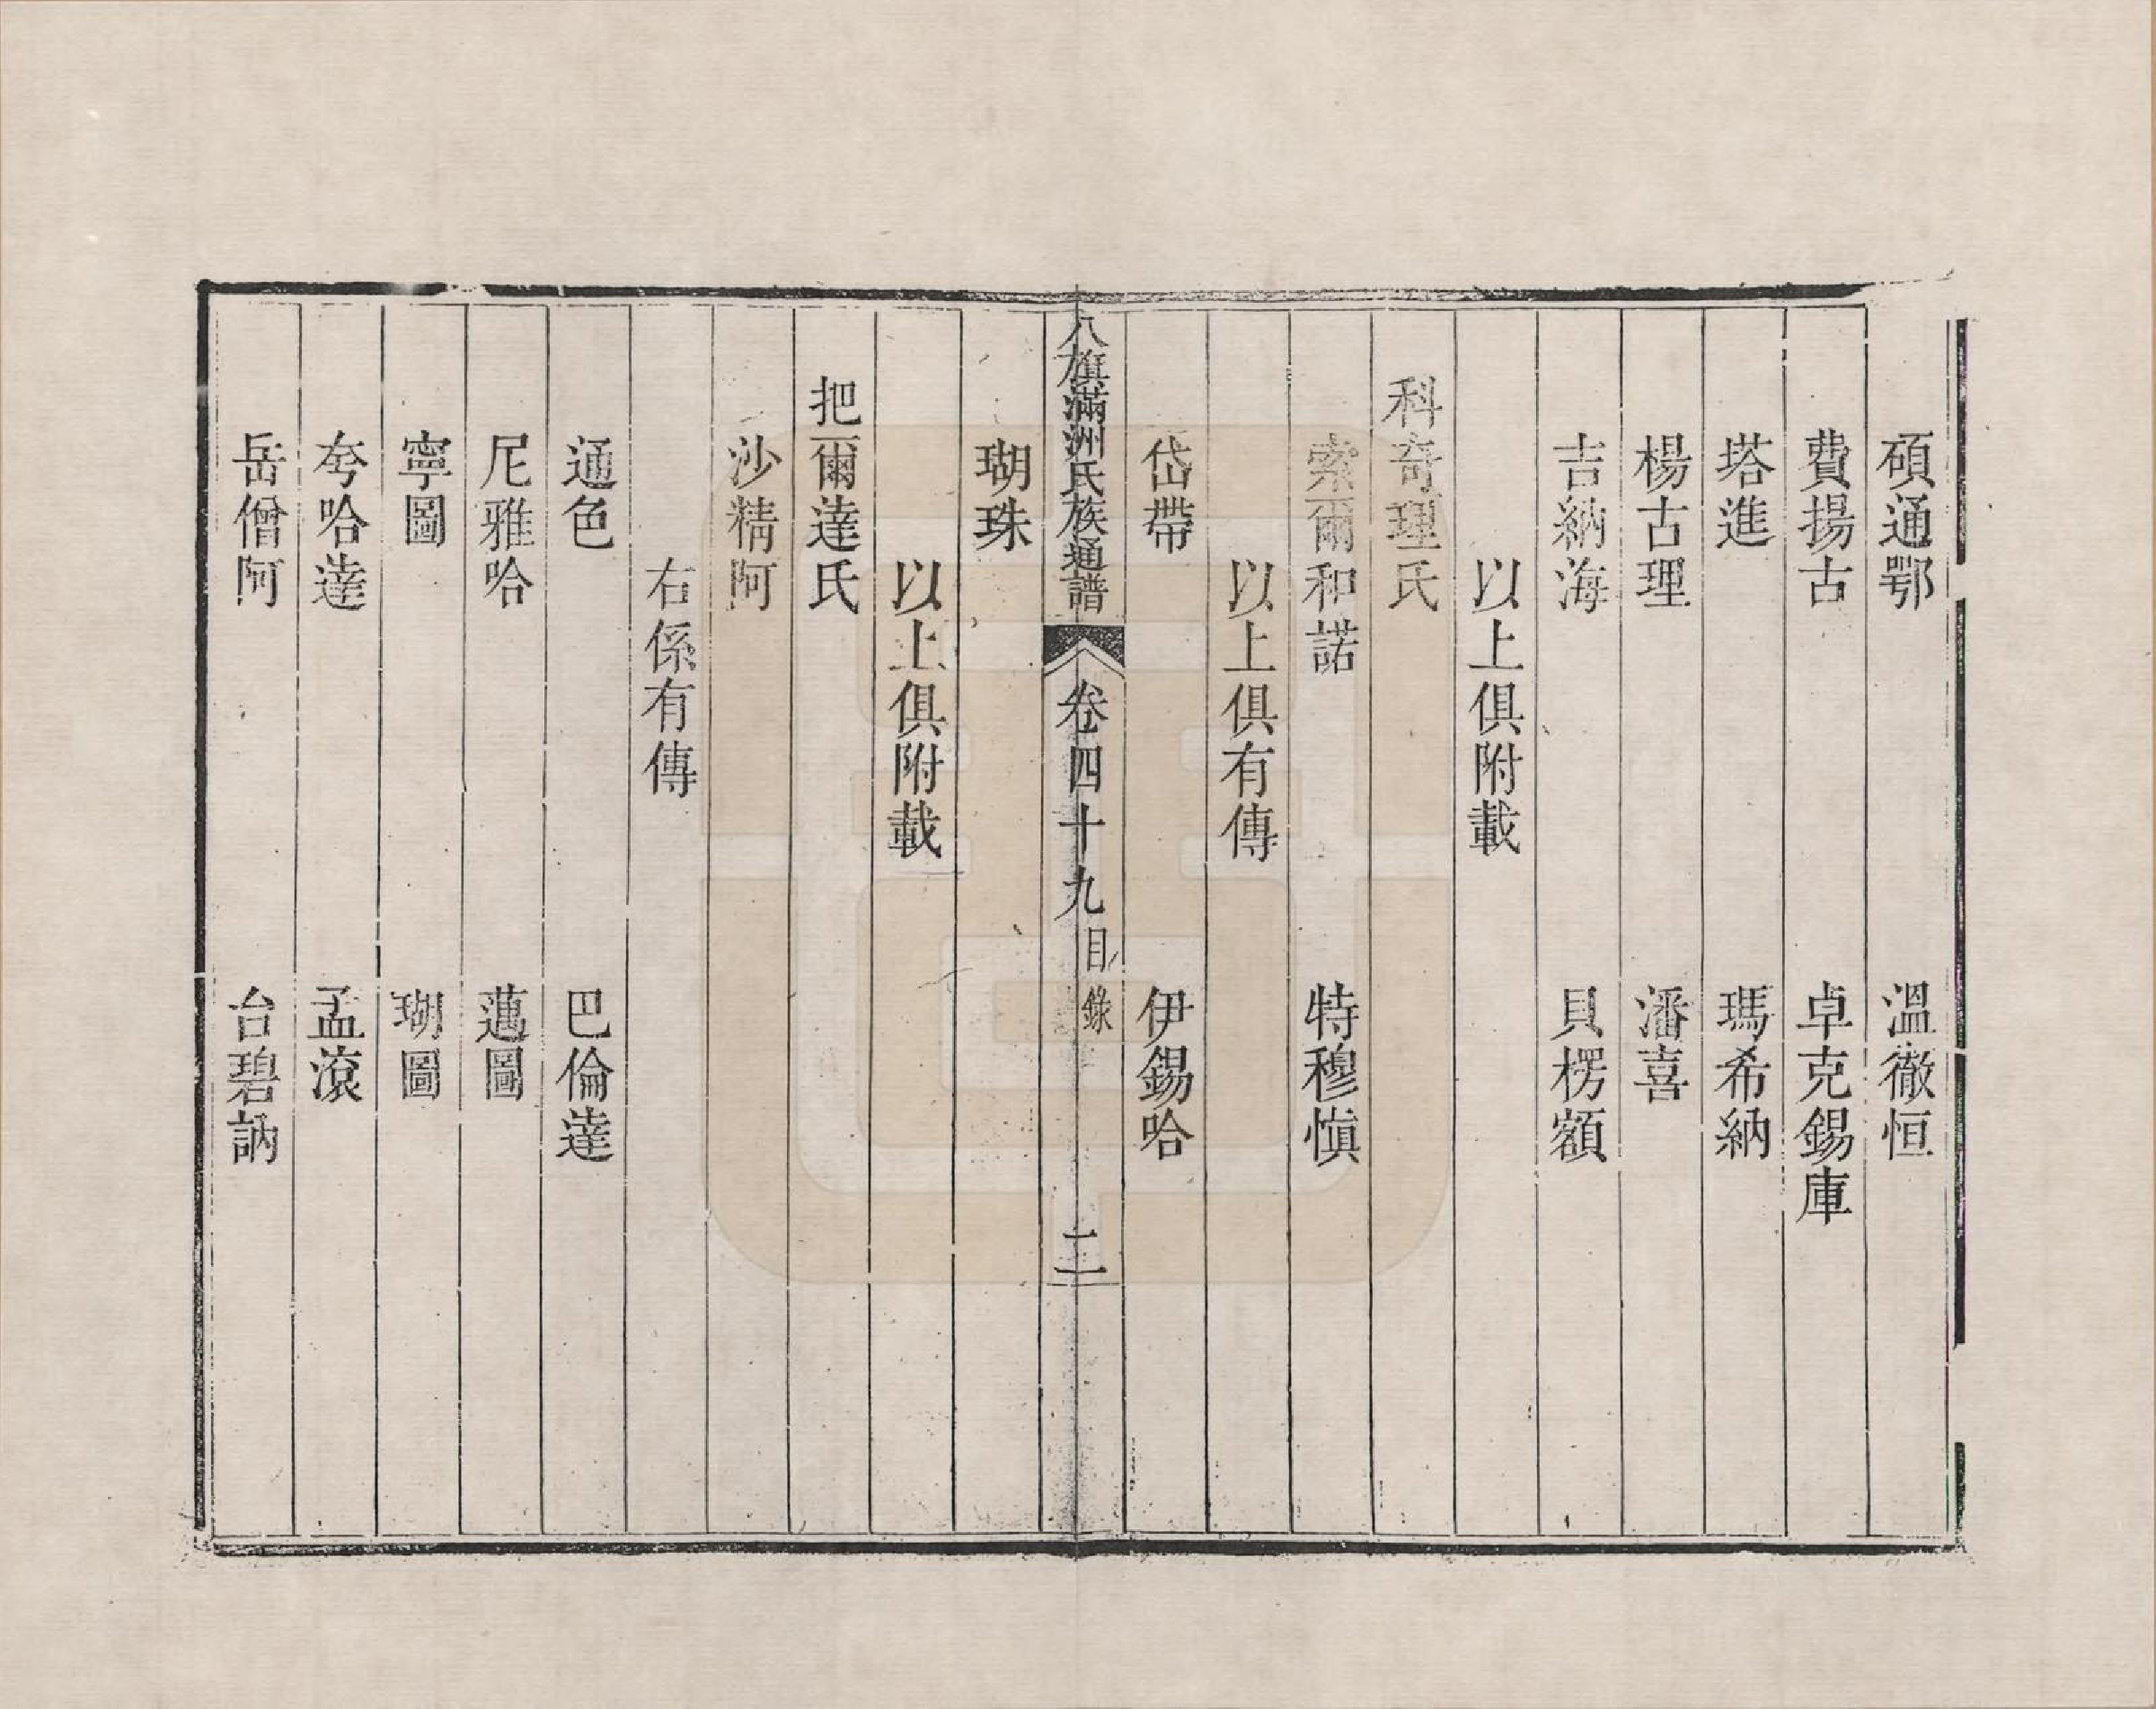 碩通鄂　溫徹恒
費揚古　卓克錫庫
塔進　瑪希納
楊古理　潘喜
吉納海　貝楞額
以上俱附載
科奇理氏
索爾和諾　特穆慎
以上俱有傳
岱帶　伊錫哈
八旗滿洲氏族通譜　卷四十九　目錄　二
瑚珠
以上俱附載
把爾達氏
沙精阿
右係有傳
通色　巴倫達
尼雅哈　邁圖
寧圖　瑚圖
夸哈達　孟滾
岳僧阿　台碧訥